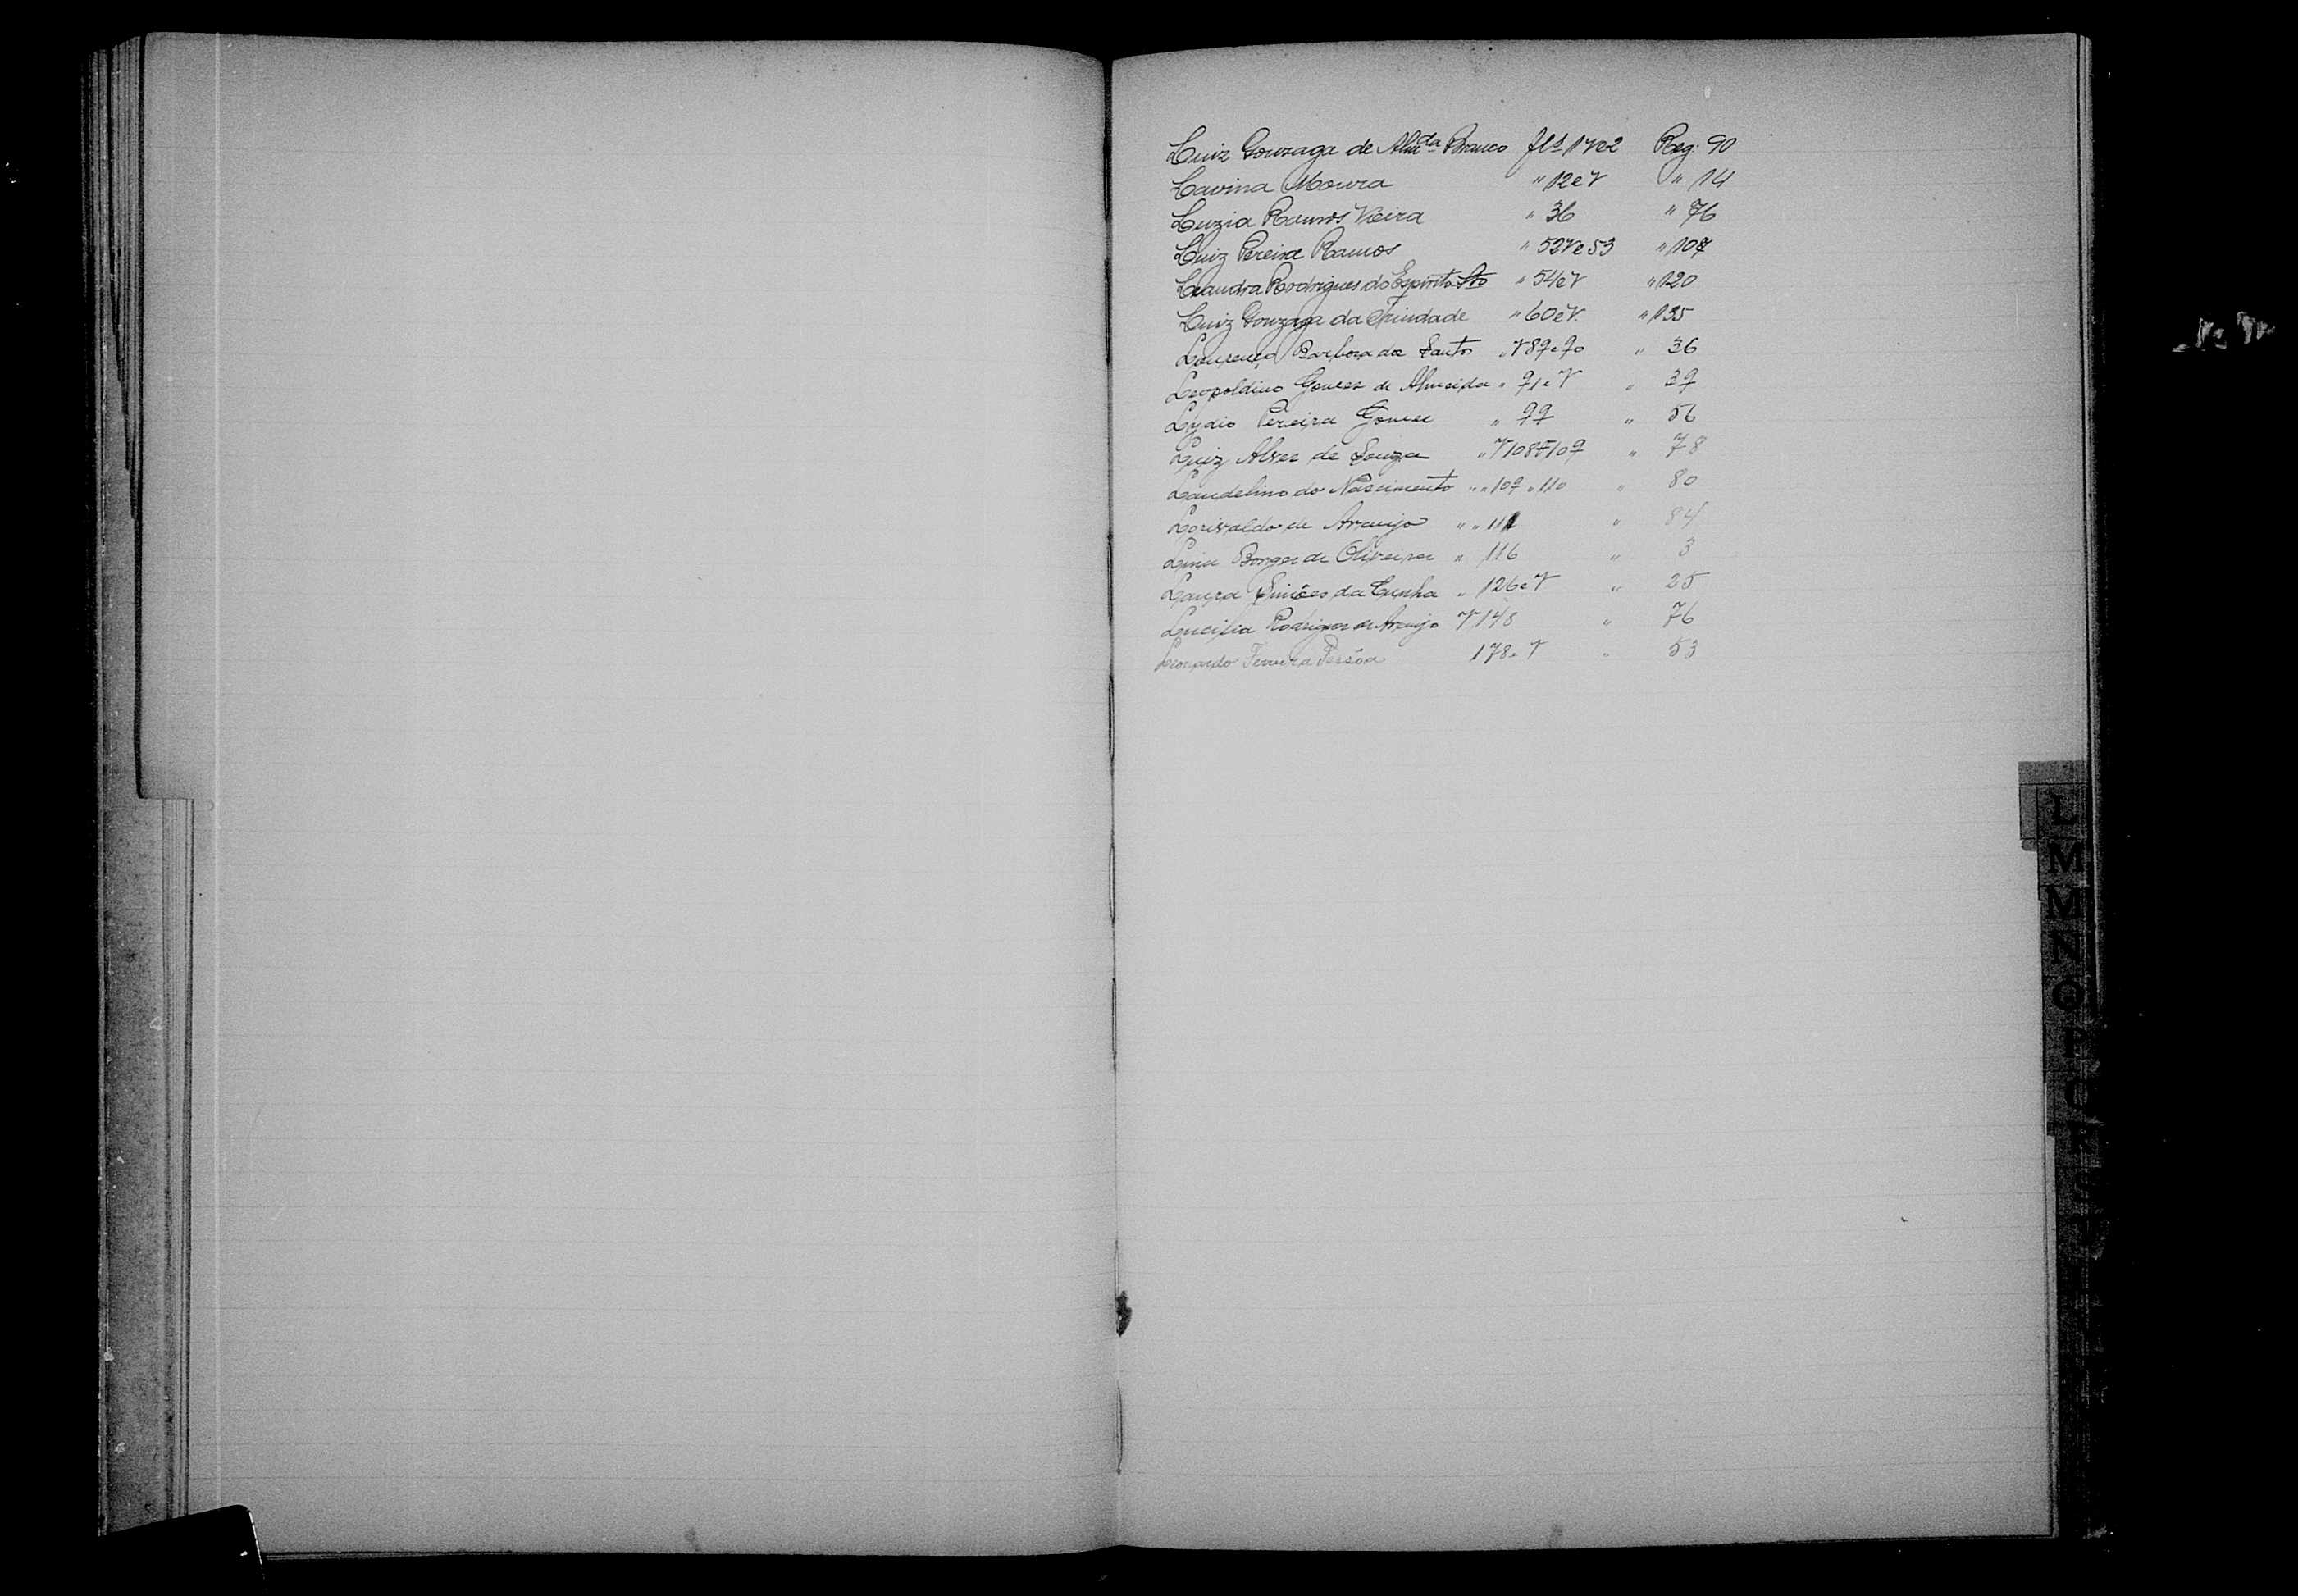 Luiz Gonzaga de Alm.da Branco fls 1 V e 2 Reg. 90
Lavina Moura " 12 e V " 14
Luzia Ramos Vieira " 36 " 76
Luiz Pereira Ramos " 52 V e 53 " 107
Leandra Rodrigues do Espirito Sto " 54 e V " 120
Luiz Gonzaga da Trindade " 60 e V. " 135
Lourenço Barbosa dos Santos " V 89 e 90 " 36
Leopoldino Gomes de Almeida " 91 e V " 39
Lydio Pereira Gomes " 99 " 56
Luiz Alves de Souza " V 108 F 109 " 78
Laudelino do Nascimento " " 109 " 110 " 80
Lorisvaldo de Araujo " " 111 " 84
Lina Borges de Oliveira " 116 " 3
Laura Simões da Cunha " 126 e V " 25
Lucilia Rodrigues de Araujo V 148 " 76
Leonardo Ferreira Pessôa 178 e V " 53
L
M
M
N
O